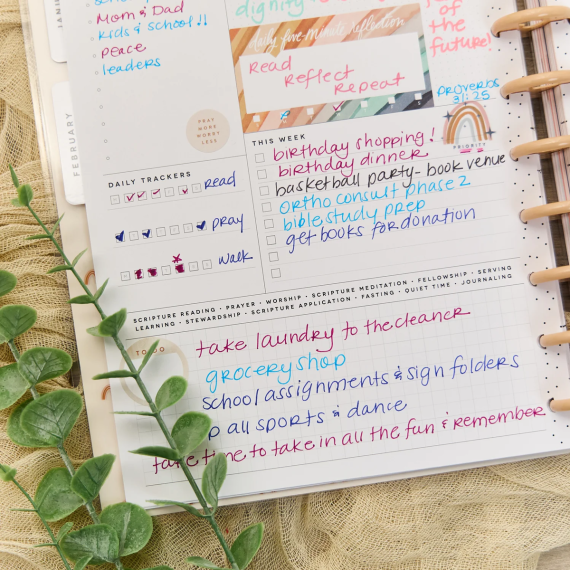 dignity
Mom & Dad
kids & school!!
peace
leaders
of
the
future!
Proverbs
31:25
daily five-minute reflection
Read
Reflect
Repeat
PRAY
MORE
WORRY
LESS
FEBRUARY
PRIORITY
THIS WEEK
birthday shopping!
birthday dinner
basketball party- book venue
ortho consult phase 2
bible study prep
get books for donation
DAILY TRACKERS
Read
pray
walk
SCRIPTURE READING • PRAYER • WORSHIP • SCRIPTURE MEDITATION • FELLOWSHIP • SERVING
LEARNING • STEWARDSHIP • SCRIPTURE APPLICATION • FASTING • QUIET TIME • JOURNALING
TO DO
take laundry to the cleaner
grocery shop
school assignments & sign folders
all sports & dance
take time to take in all the fun & remember